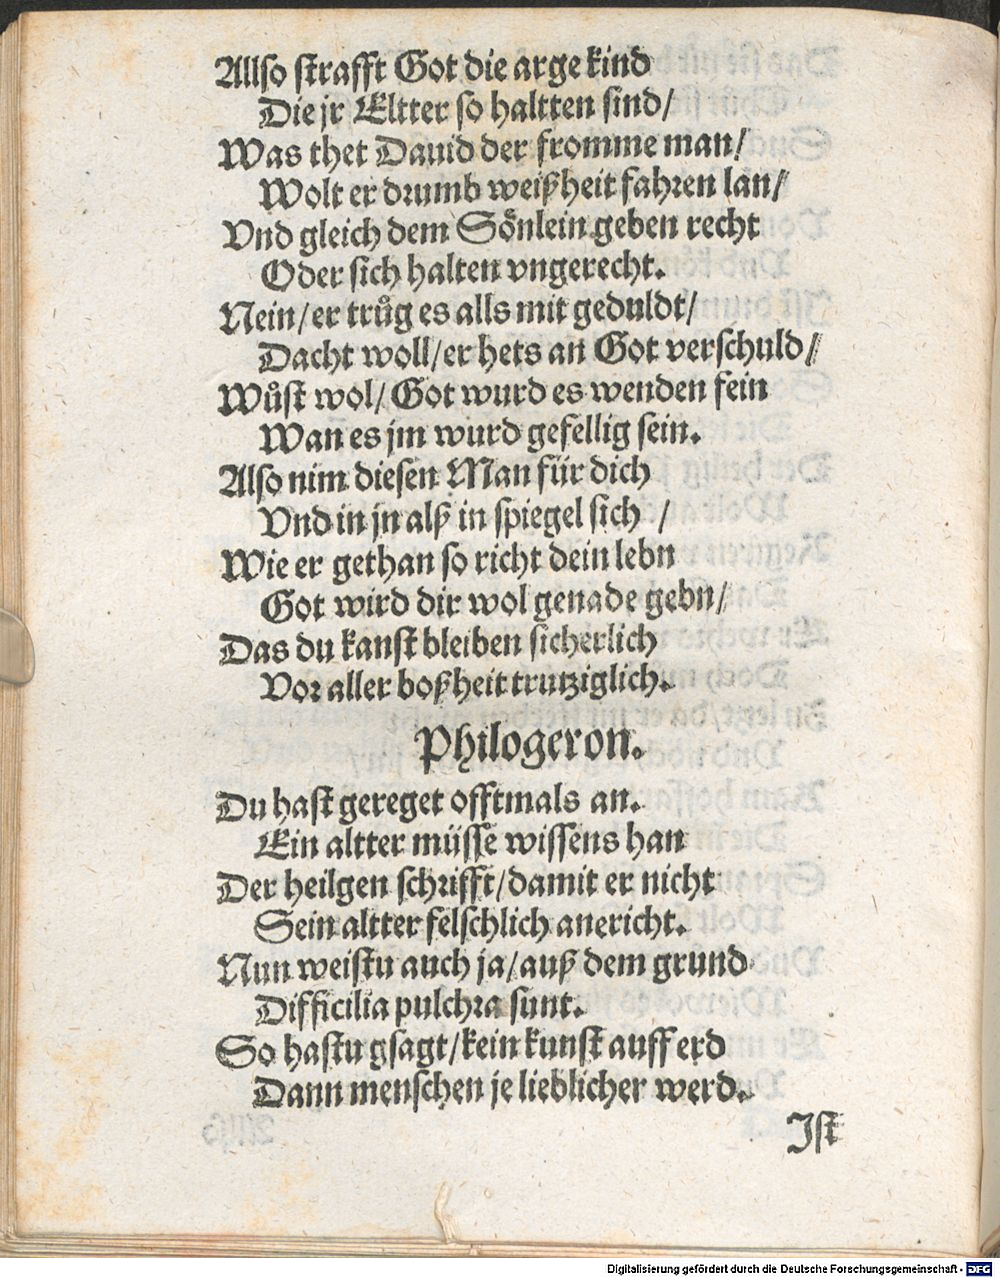 Allso strafft Got die arge kind
Die jr Eltter so haltten sind/
Was thet Dauid der fromme man/
Wolt er drumb weißheit fahren lan/
Vnd gleich dem Soͤnlein geben recht
Oder sich halten vngerecht.
Nein/er truͦg es alls mit geduldt/
Dacht woll/er hets an Got verschuld/
Wuͦst wol/Got wurd es wenden fein
Wan es jm wurd gefellig sein.
Also nim diesen Man für dich
Vnd in jn alß in spiegel sich /
Wie er gethan so richt dein lebn
Got wird dir wol genade gebn/
Das du kanst bleiben sicherlich
Vor aller boßheit trutziglich.
Philogeron.
Du hast gereget offtmals an.
Ein altter müsse wissens han
Der heilgen schrifft/damit er nicht
Sein altter felschlich anericht.
Nun weistu auch ja/auß dem grund
Difficilia pulchra sunt.
So hastu gsagt/kein kunst auff erd
Dann menschen je lieblicher werd.
Ist
Digitalisierung gefördert durch die Deutsche Forschungsgemeinschaft - DFG